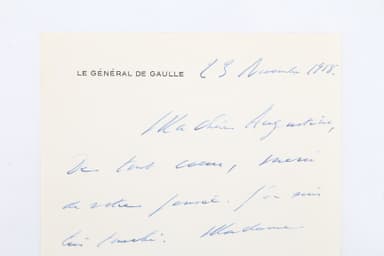 LE GÉNÉRAL DE GAULLE 23 Novembre 1958.
Ma chère Augustine,
De tout coeur, merci
de votre pensée. J'en suis
très touché. Madame